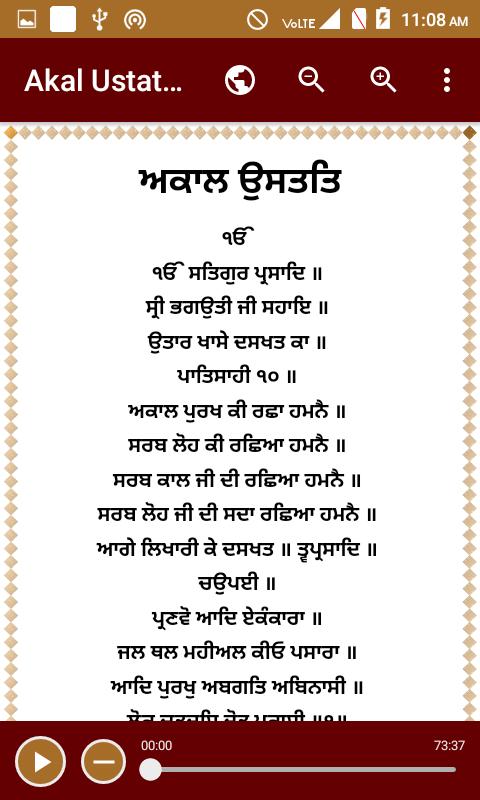 VoLTE 11:08 AM
Akal Ustat...
ਅਕਾਲ ਉਸਤਤਿ
ੴ
ੴ ਸਤਿਗੁਰ ਪ੍ਰਸਾਦਿ ॥
ਸ੍ਰੀ ਭਗਉਤੀ ਜੀ ਸਹਾਇ ॥
ਉਤਾਰ ਖਾਸੇ ਦਸਖਤ ਕਾ ॥
ਪਾਤਿਸਾਹੀ ੧੦ ॥
ਅਕਾਲ ਪੁਰਖ ਕੀ ਰਛਾ ਹਮਨੈ ॥
ਸਰਬ ਲੋਹ ਕੀ ਰਛਿਆ ਹਮਨੈ ॥
ਸਰਬ ਕਾਲ ਜੀ ਦੀ ਰਛਿਆ ਹਮਨੈ ॥
ਸਰਬ ਲੋਹ ਜੀ ਦੀ ਸਦਾ ਰਛਿਆ ਹਮਨੈ ॥
ਆਗੇ ਲਿਖਾਰੀ ਕੇ ਦਸਖਤ ॥ ਤ੍ਵਪ੍ਰਸਾਦਿ ॥
ਚਉਪਈ ॥
ਪ੍ਰਣਵੋ ਆਦਿ ਏਕੰਕਾਰਾ ॥
ਜਲ ਥਲ ਮਹੀਅਲ ਕੀਓ ਪਸਾਰਾ ॥
ਆਦਿ ਪੁਰਖੁ ਅਬਗਤਿ ਅਬਿਨਾਸੀ ॥
00:00 73:37